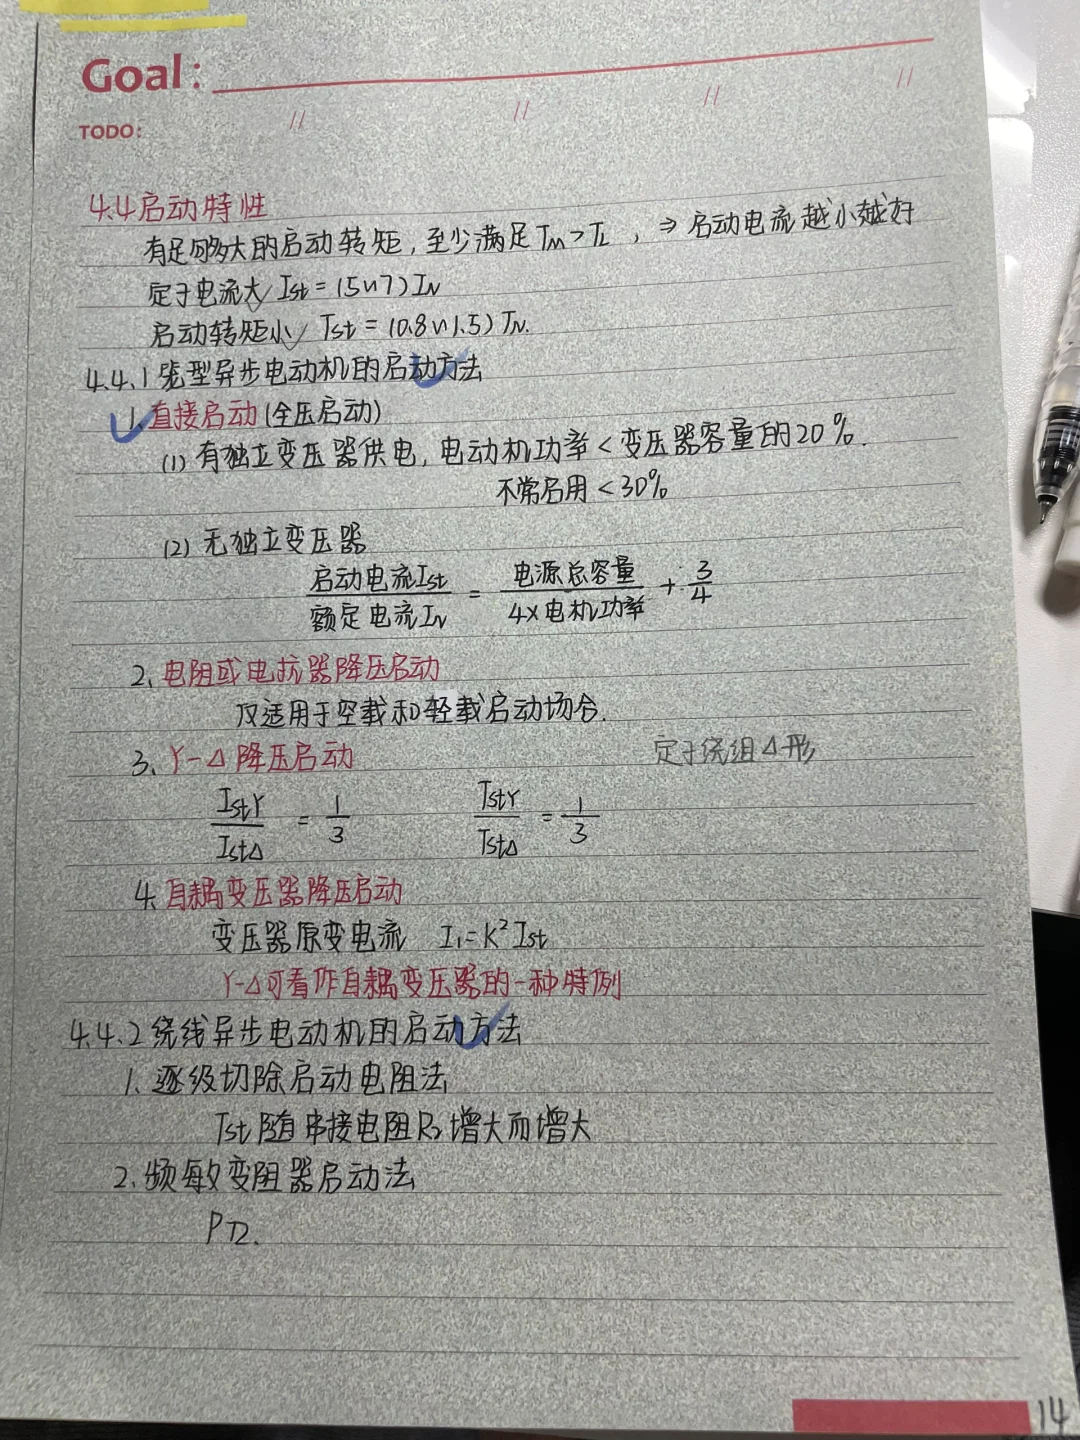 Goal:
TODO:
4.4 启动特性
有足够大的启动转矩，至少满足 TM>TL ，⇒ 启动电流越小越好
定子电流大 Ist = (5~7) IN
启动转矩小 Tst = (0.8~1.5) TN.
4.4.1 笼型异步电动机的启动方法
1、直接启动 (全压启动)
(1) 有独立变压器供电，电动机功率 < 变压器容量的20%.
不常启用 < 30%
(2) 无独立变压器
启动电流Ist / 额定电流IN = 电源总容量 / 4×电机功率 + 3/4
2、电阻或电抗器降压启动
仅适用于空载和轻载启动场合.
3、Y-Δ 降压启动 定子绕组Δ形
IstY / IstΔ = 1/3 TstY / TstΔ = 1/3
4、自耦变压器降压启动
变压器原变电流 I1 = K²Ist
Y-Δ可看作自耦变压器的一种特例
4.4.2 绕线异步电动机的启动方法
1、逐级切除启动电阻法
Tst 随串接电阻R2增大而增大
2、频敏变阻器启动法
P72.
14